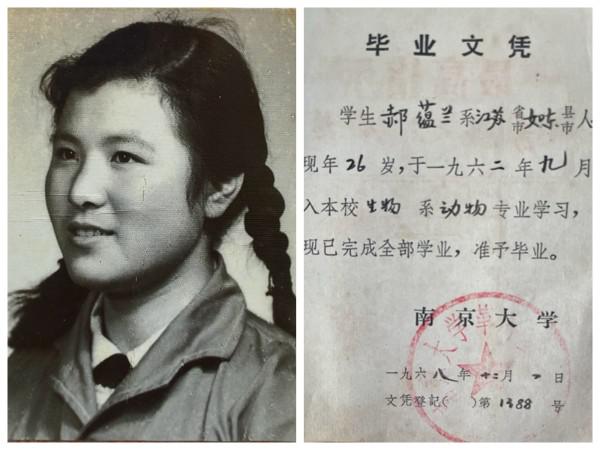 毕业文凭
学生郝蕴兰系江苏省市如东县市人
现年26岁,于一九六二年九月
入本校生物系动物专业学习,
现已完成全部学业,准予毕业。
南京大学
一九六八年十二月 日
文凭登記( )第1388号